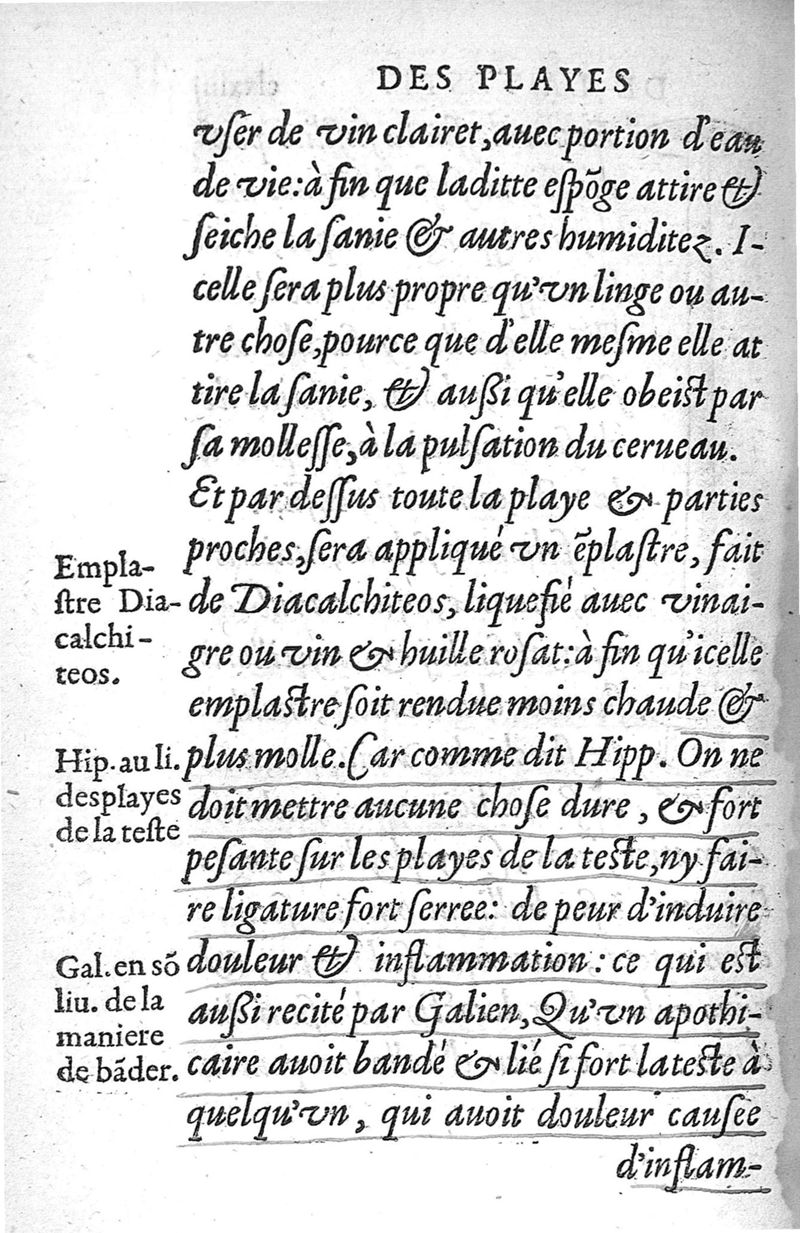 DES PLAYES
vſer de vin clairet, auec portion d'eau
de vie: à fin que laditte eſpõge attire &
ſeiche la ſanie & autres humiditez. I-
celle ſera plus propre qu'vn linge ou au-
tre choſe, pource que d'elle meſme elle at
tire la ſanie, & auſsi qu'elle obeiſt par
ſa molleſſe, à la pulſation du cerueau.
Et par deſſus toute la playe & parties
proches, ſera appliqué vn ẽplaſtre, fait
de Diacalchiteos, liquefié auec vinai-
gre ou vin & huille roſat: à fin qu'icelle
emplaſtre ſoit rendue moins chaude &
plus molle. Car comme dit Hipp. On ne
doit mettre aucune choſe dure, & fort
peſante ſur les playes de la teſte, ny fai-
re ligature fort ſerree: de peur d'induire
douleur & inflammation: ce qui eſt
auſsi recité par Galien, Qu'vn apothi-
caire auoit bandé & lié ſi fort la teſte à
quelqu'vn, qui auoit douleur cauſee
d'inflam-
Empla-
ſtre Dia-
calchi-
teos.
Hip. au li.
des playes
de la teſte
Gal. en sõ
liu. de la
maniere
de bãder.